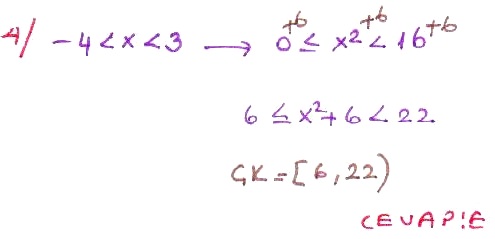 4/ -4<x<3 → 0^{+6} ≤ x²^{+6} < 16^{+6}
6 ≤ x²+6 < 22
ÇK=[6,22)
CEVAP:E